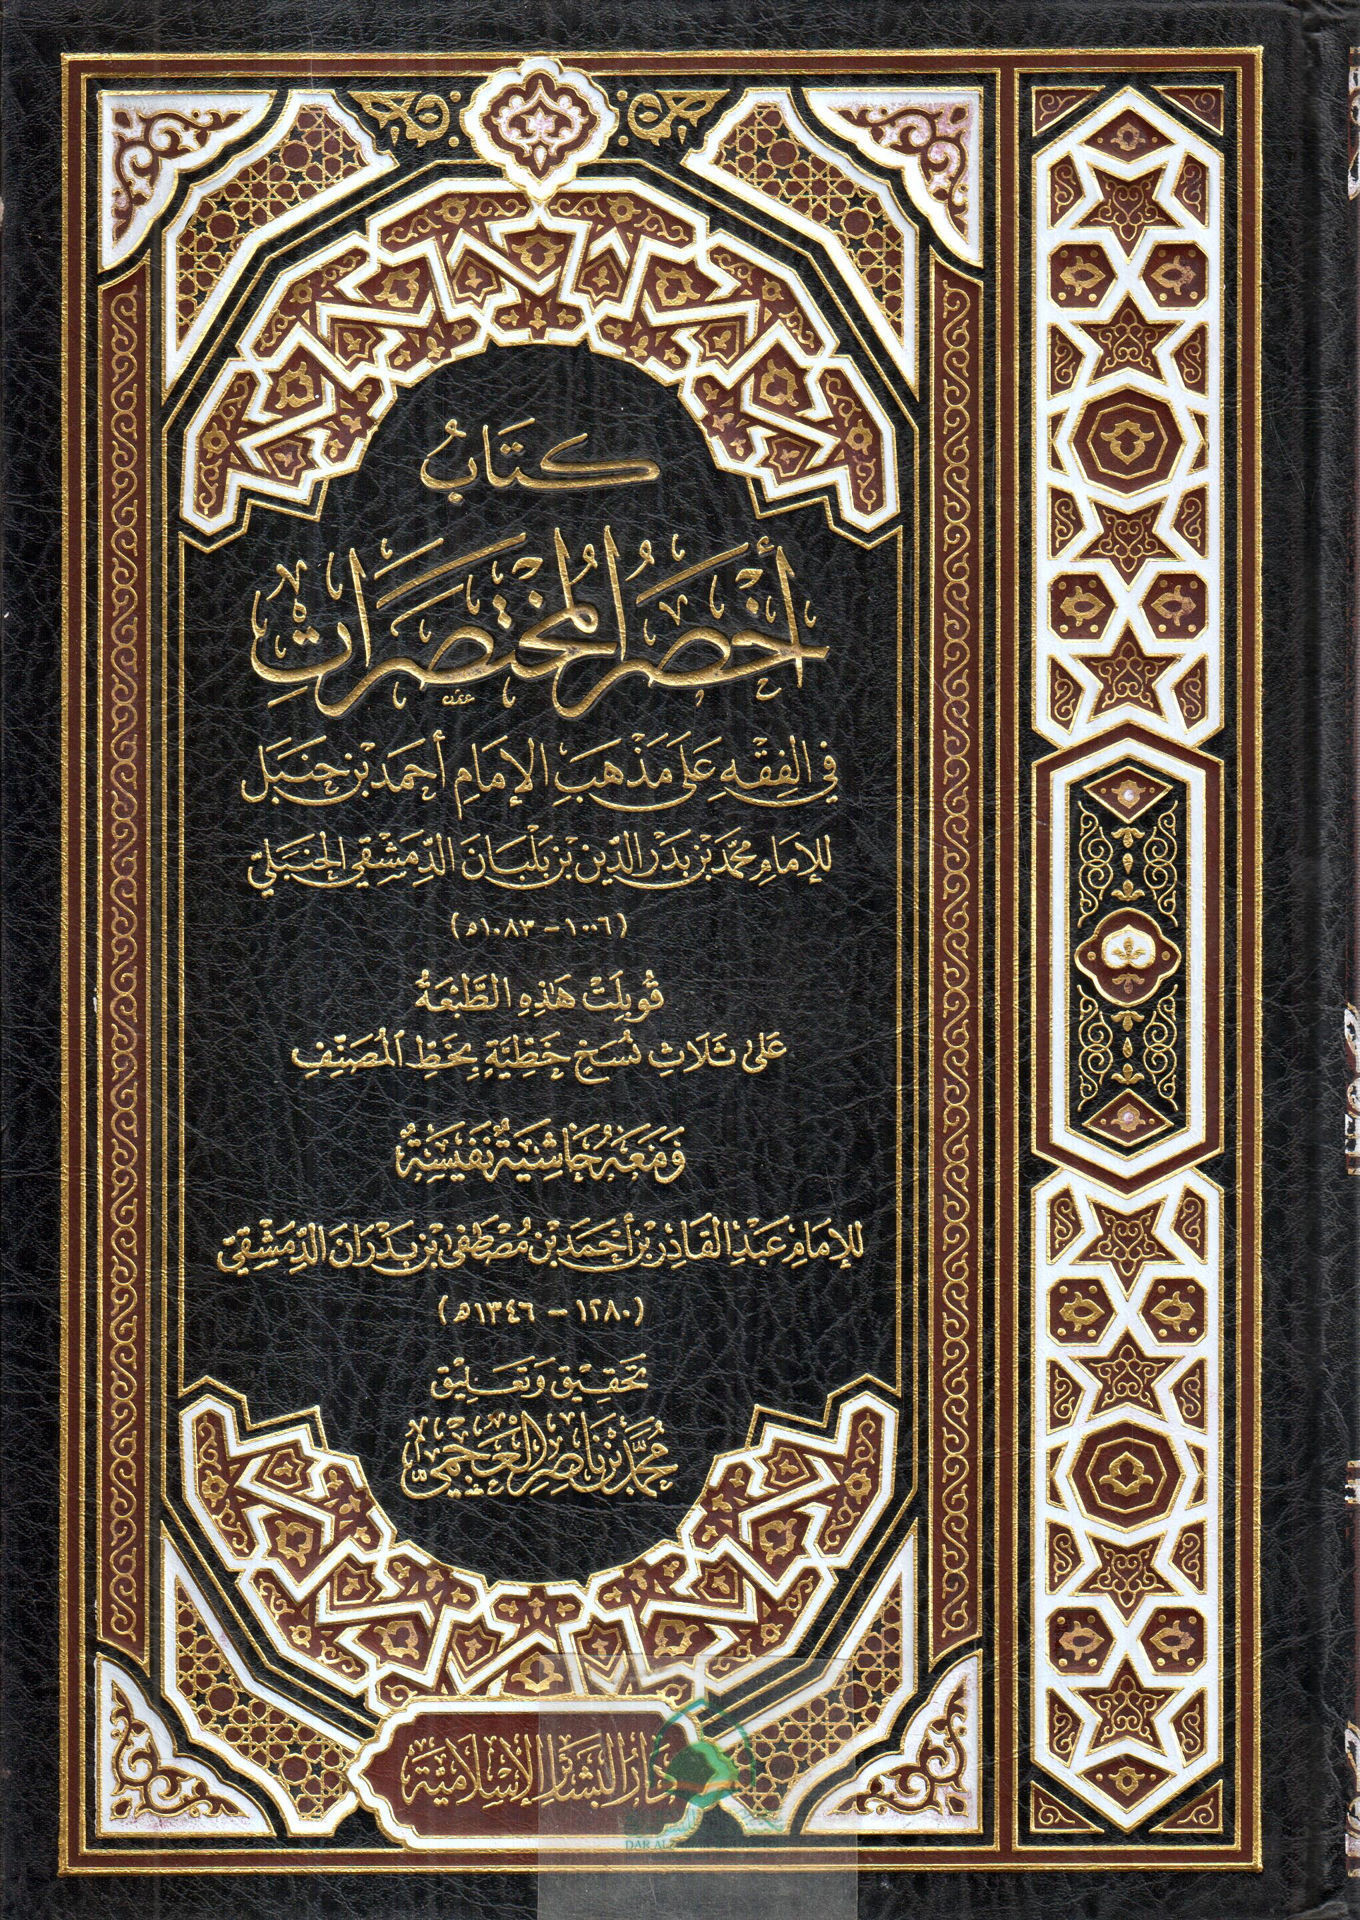 كِتَابُ
أَخْصَرُ المُخْتَصَرَاتِ
في الفِقْهِ عَلَى مَذْهَبِ الإمَامِ أحمَد بْن حَنبَل
للإمَامِ محمَّد بْن بَدْر الدِّين بْن بَلْبَانَ الدِّمَشْقِي الحَنبَليِّ
(١٠٠٦ - ١٠٨٣هـ)
قُوبِلَتْ هَذِهِ الطَّبْعَةُ
عَلى ثَلَاثِ نُسَخٍ خَطِّيَّةٍ بِخَطِّ المُصَنِّفِ
وَمَعَهُ حَاشِيَةٌ نَفِيسَةٌ
للإمَامِ عَبْدِ القَادِر بْن أَحْمَد بْن مُصْطَفى بْن بَدْرَانَ الدِّمَشْقِيِّ
(١٢٨٠ - ١٣٤٦هـ)
تَحْقِيق وَتَعْلِيق
مُحَمَّدُ بْنُ نَاصِر العَجْمِيِّ
دَارُ البَشَائِرِ الإِسْلَامِيَّة
DAR AL